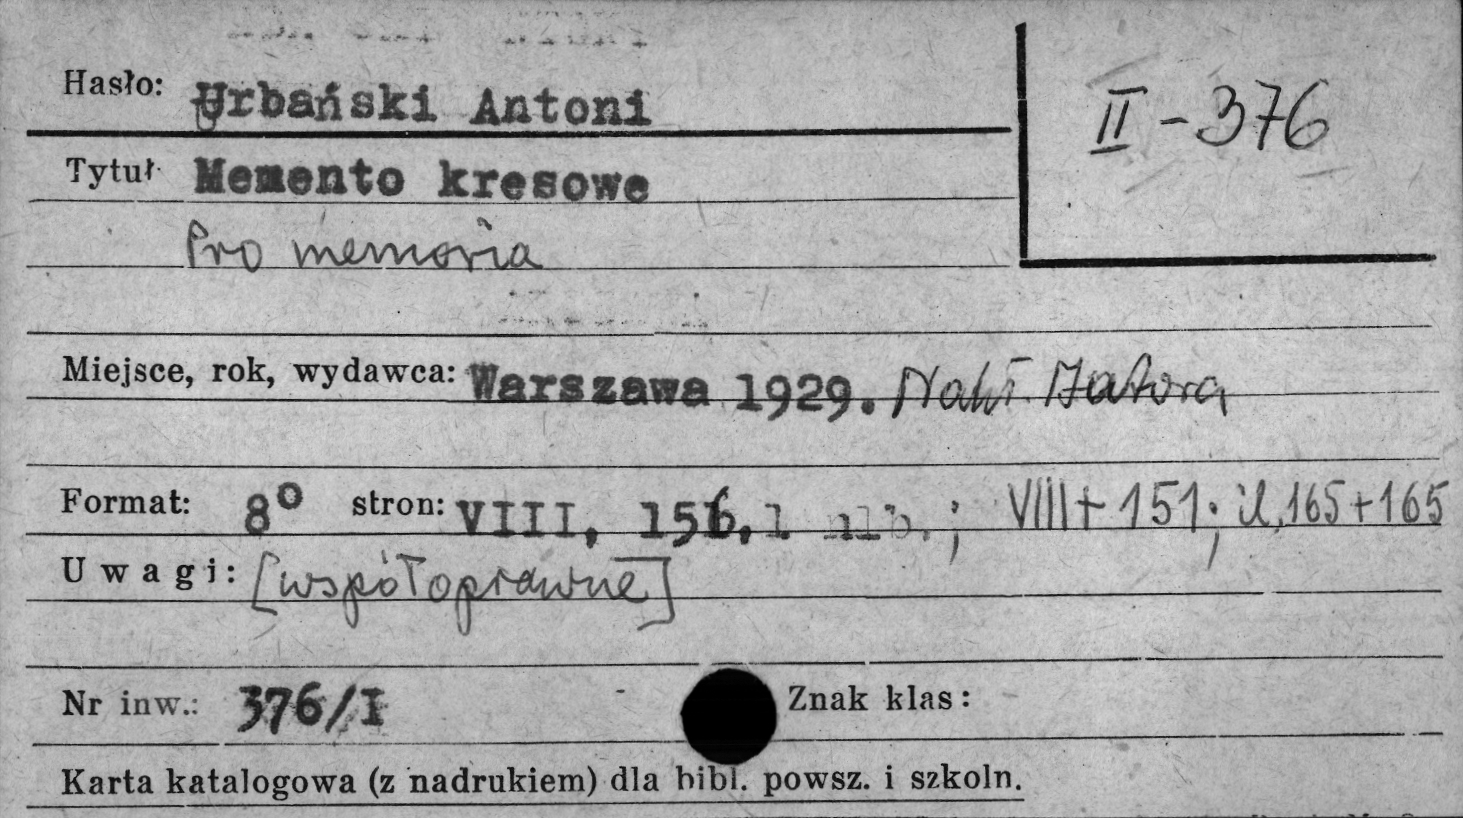 Hasło: Urbański Antoni
II - 376
Tytuł Memento kresowe
Pro memoria
Miejsce, rok, wydawca: Warszawa 1929. Nakł. Autora
Format: 8° stron: VIII, 156, 1 nlb. ; VIII + 151; il. 165 + 165
Uwagi: [współoprawne]
Nr inw.: 376/I Znak klas:
Karta katalogowa (z nadrukiem) dla bibl. powsz. i szkoln.